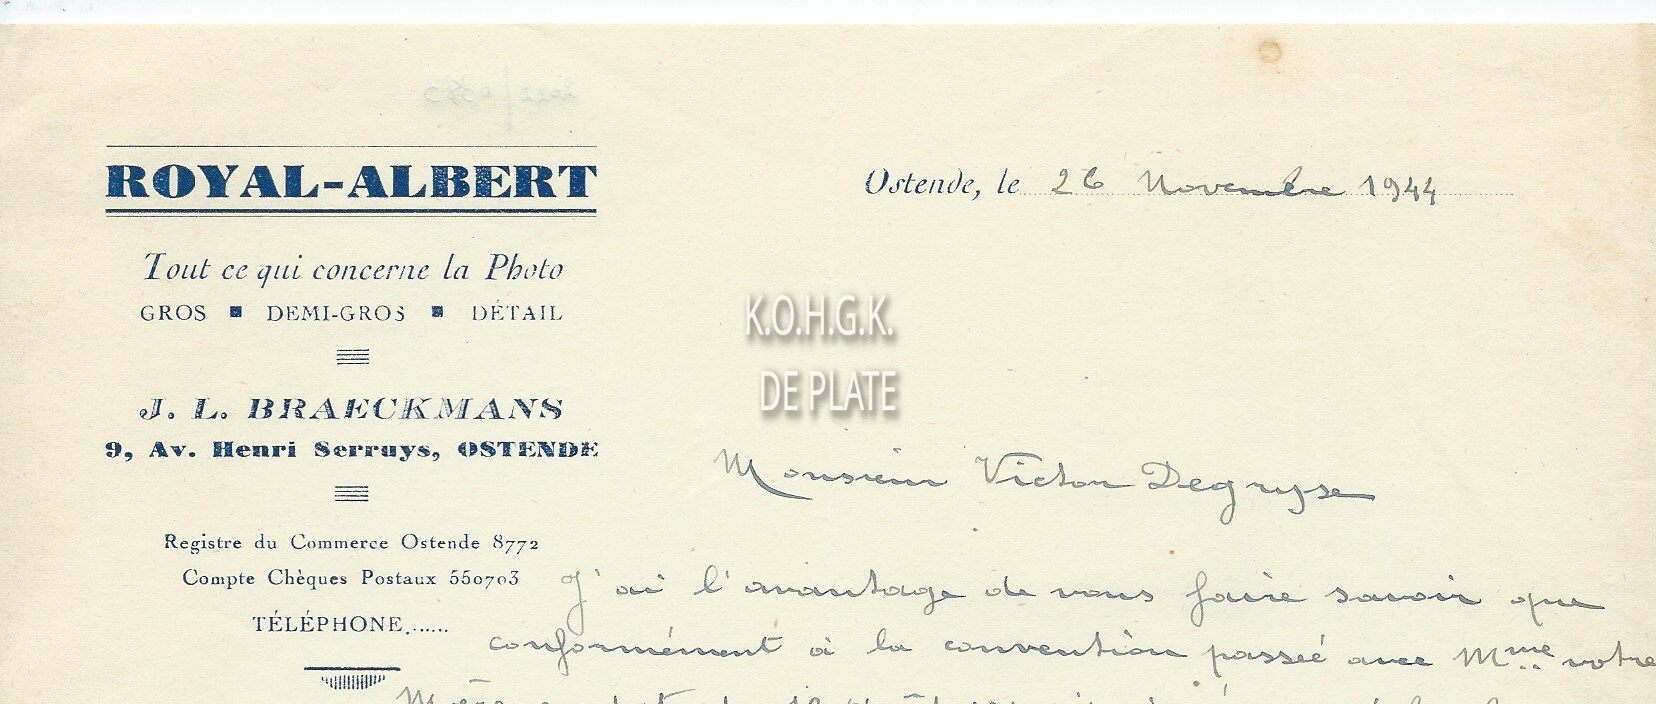 ROYAL-ALBERT
Tout ce qui concerne la Photo
GROS ▪ DEMI-GROS ▪ DÉTAIL
J. L. BRAECKMANS
9, Av. Henri Serruys, OSTENDE
Registre du Commerce Ostende 8772
Compte Chèques Postaux 550703
TÉLÉPHONE.......
Ostende, le 26 Novembre 1944
K.O.H.G.K.
DE PLATE
Monsieur Victor Degryse
J'ai l'avantage de vous faire savoir que
conformément à la convention passée avec Mme votre